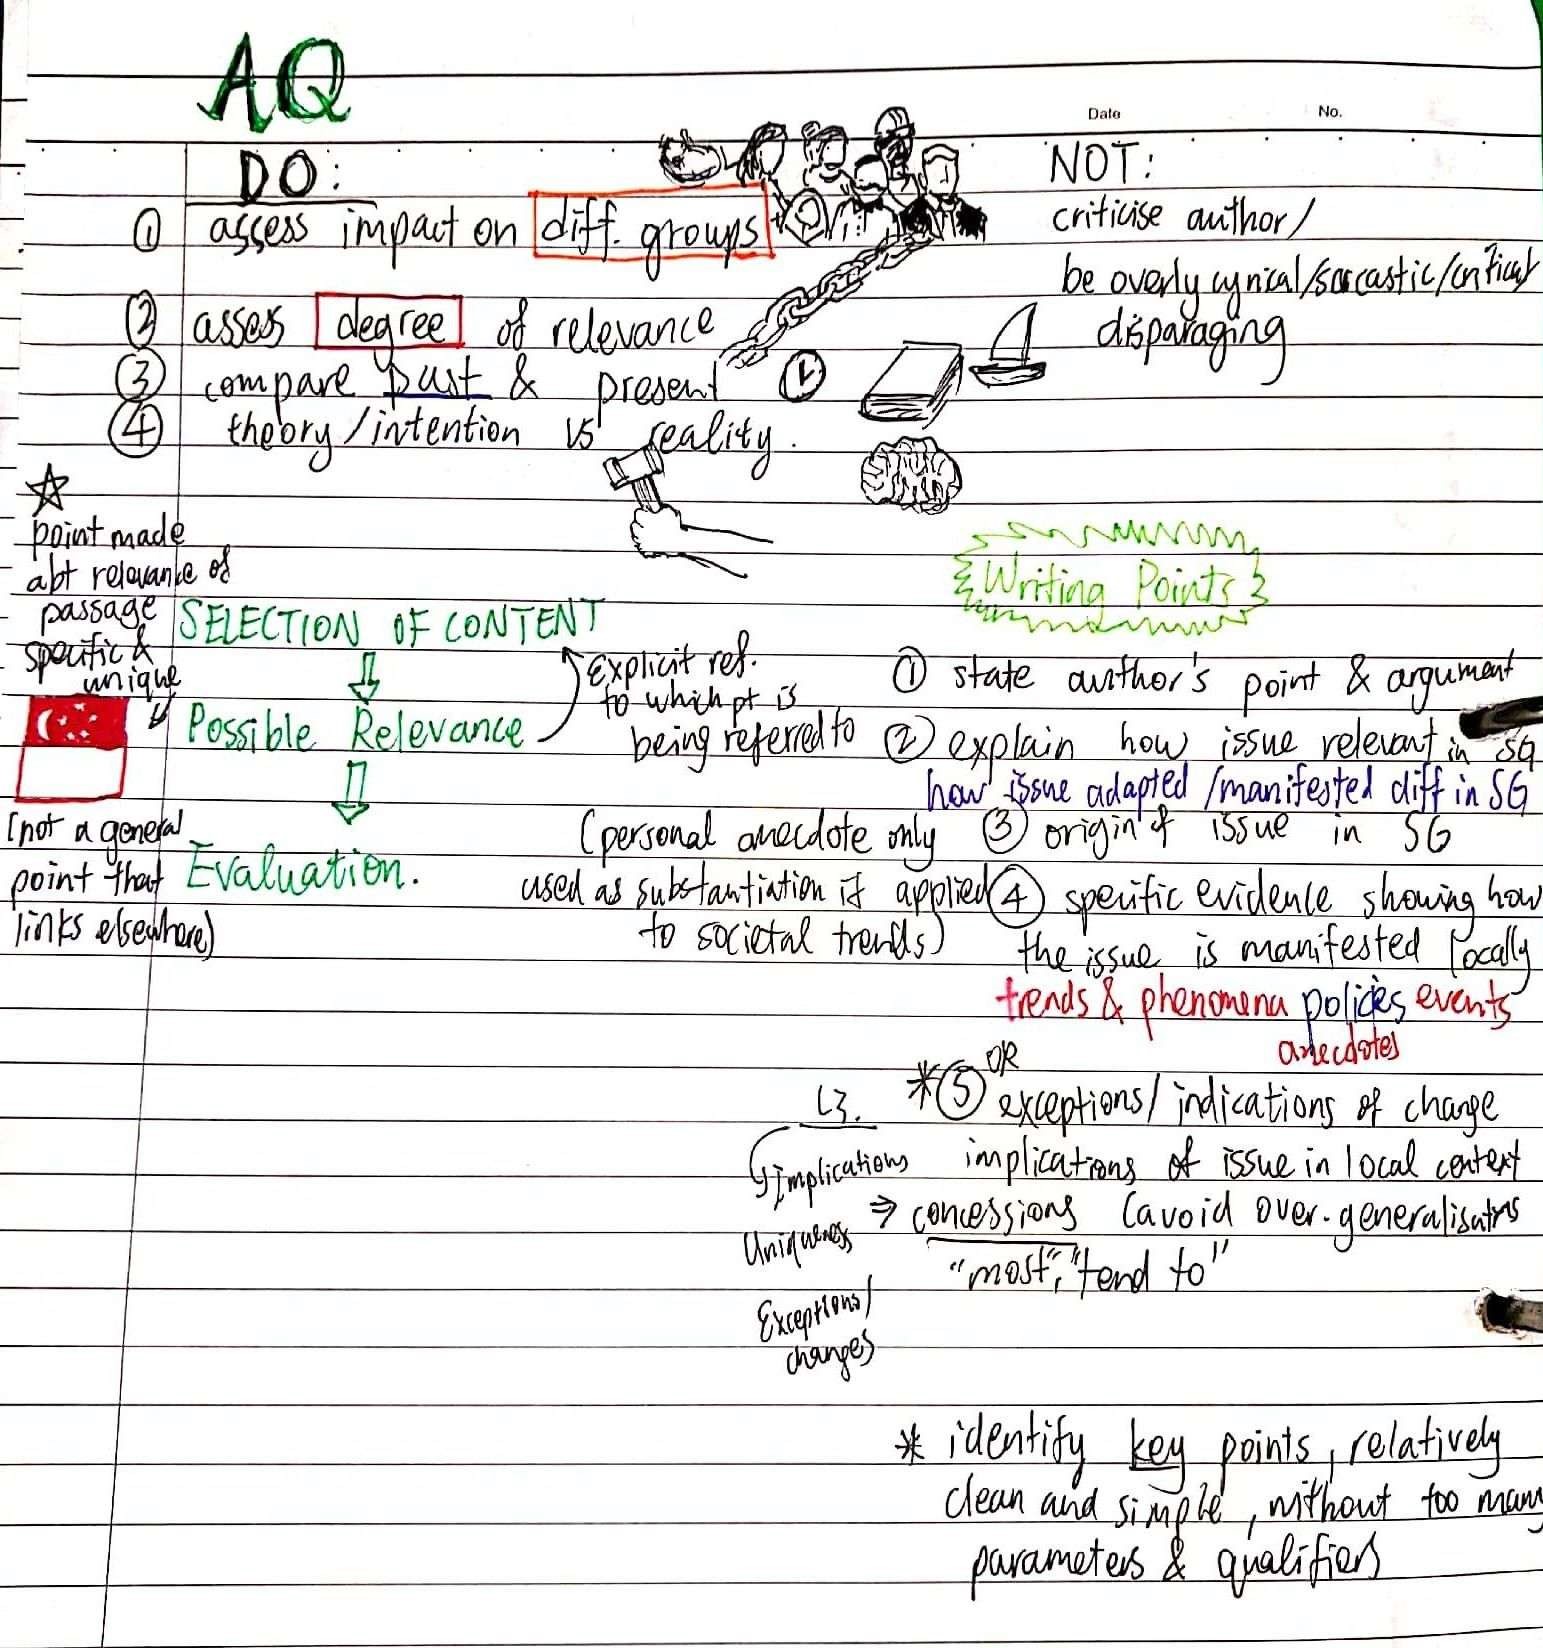 AQ
Date
No.
DO:
① assess impact on diff. groups
② assess degree of relevance
③ compare past & present
④ theory/intention vs reality.
NOT:
criticise author/
be overly cynical/sarcastic/critical
disparaging
point made
abt relevance of
passage
specific &
unique
(not a general
point that
links elsewhere)
SELECTION OF CONTENT
Possible Relevance
Evaluation.
Explicit ref.
to which pt is
being referred to
(personal anecdote only
used as substantiation if applied
to societal trends)
Writing Points
① state author's point & argument
② explain how issue relevant in SG
how issue adapted/manifested diff in SG
③ origin of issue in SG
④ specific evidence showing how
the issue is manifested locally
trends & phenomena policies events
anecdotes
OR
*⑤ exceptions/indications of change
implications of issue in local context
⇒ concessions (avoid over-generalisatns
"most", "tend to"
L3.
Implications
Uniqueness
Exceptions/
changes
* identify key points, relatively
clean and simple, without too many
parameters & qualifiers